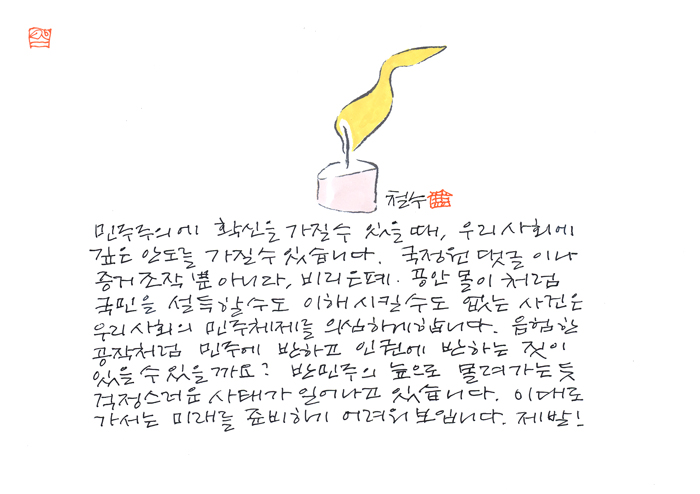 철수
민주주의에 확신을 가질 수 있을 때, 우리 사회에
깊은 안도를 가질 수 있습니다. 국정원 댓글이나
증거조작 뿐 아니라, 비리은폐·공안몰이처럼
국민을 설득할 수도 이해시킬 수도 없는 사건은
우리 사회의 민주체제를 의심하게 합니다. 음험한
공작처럼 민주에 반하고 인권에 반하는 짓이
있을 수 있을까요? 반민주의 늪으로 몰려가는 듯
걱정스러운 사태가 일어나고 있습니다. 이대로
가서는 미래를 준비하기 어려워 보입니다. 제발!